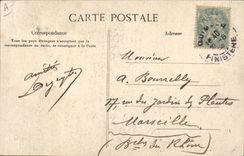 A
CARTE POSTALE
Correspondance
Adresse
Tous les pays étrangers n'acceptent pas la
correspondance au recto, se renseigner à la Poste
FINISTERE
amitiés
Monsieur
A. Bourrelly
rue du Jardin des Plantes
Marseille
(Bches du Rhône)